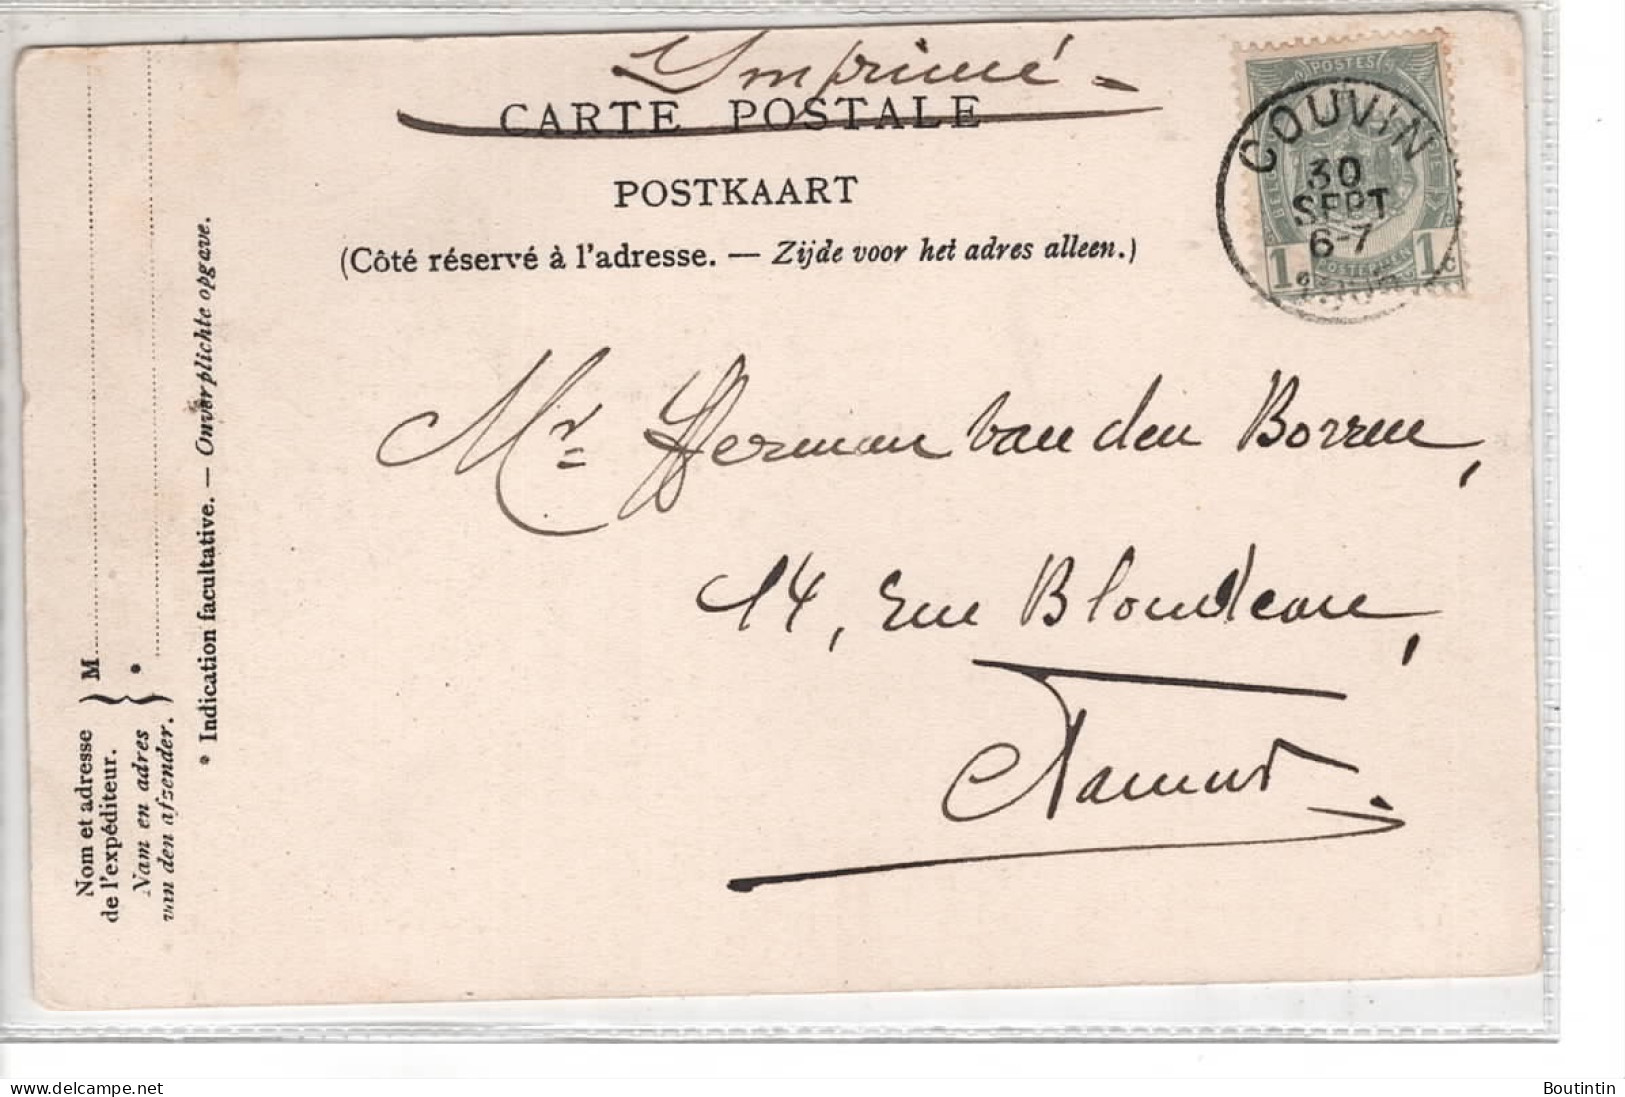 Imprimé
CARTE POSTALE
POSTKAART
(Côté réservé à l'adresse. — Zijde voor het adres alleen.)
POSTES
COUVIN
30
SEPT
6-7
1 POSTERIJEN 1c
Mr Herman van den Borren,
14, Rue Blondeau,
Namur
Nom et adresse
de l'expéditeur.
Nam en adres
van den afzender.
M
*
* Indication facultative. — Onverplichte opgave.
delcampe.net
Boutintin